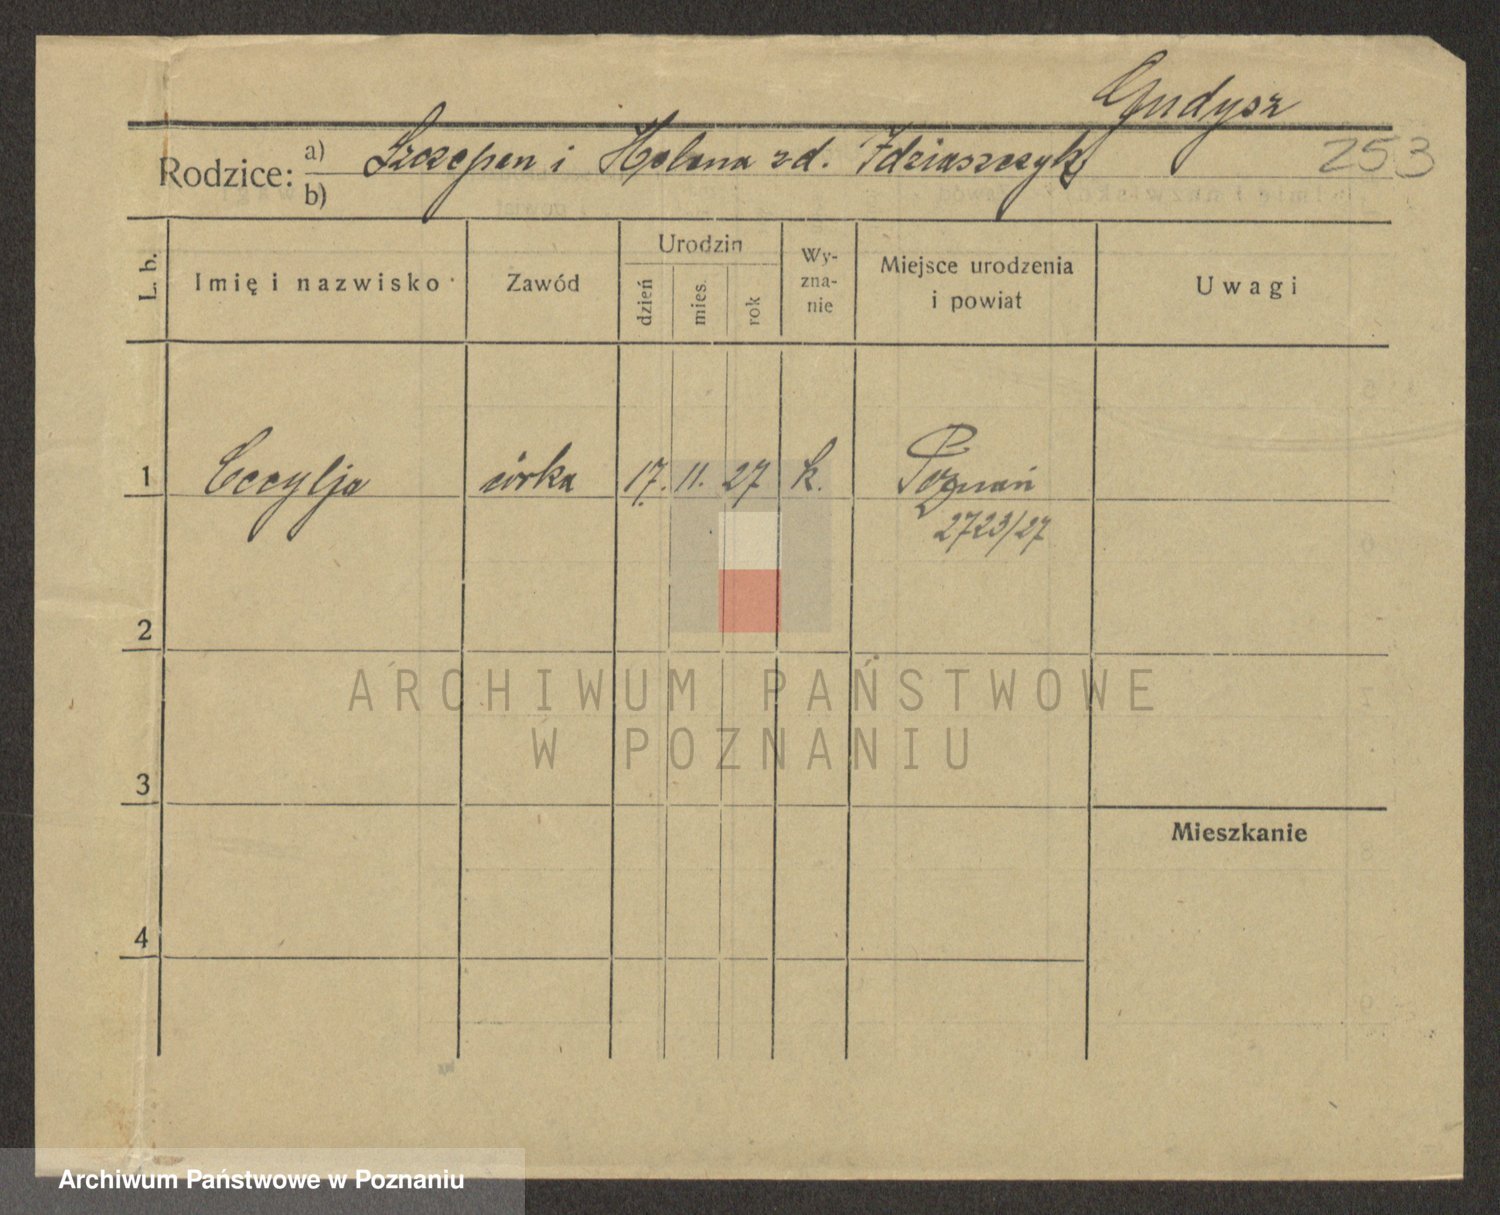 Gudysz
253
Rodzice: a) Szczepan i Helena zd. Idziaszczyk
b)
L. b.
Imię i nazwisko
Zawód
Urodzin
dzień
mies.
rok
Wy-
zna-
nie
Miejsce urodzenia
i powiat
Uwagi
1 Cecylja córka 17. 11. 27 k. Poznań
2723/27
2
ARCHIWUM PAŃSTWOWE
W POZNANIU
3
Mieszkanie
4
Archiwum Państwowe w Poznaniu